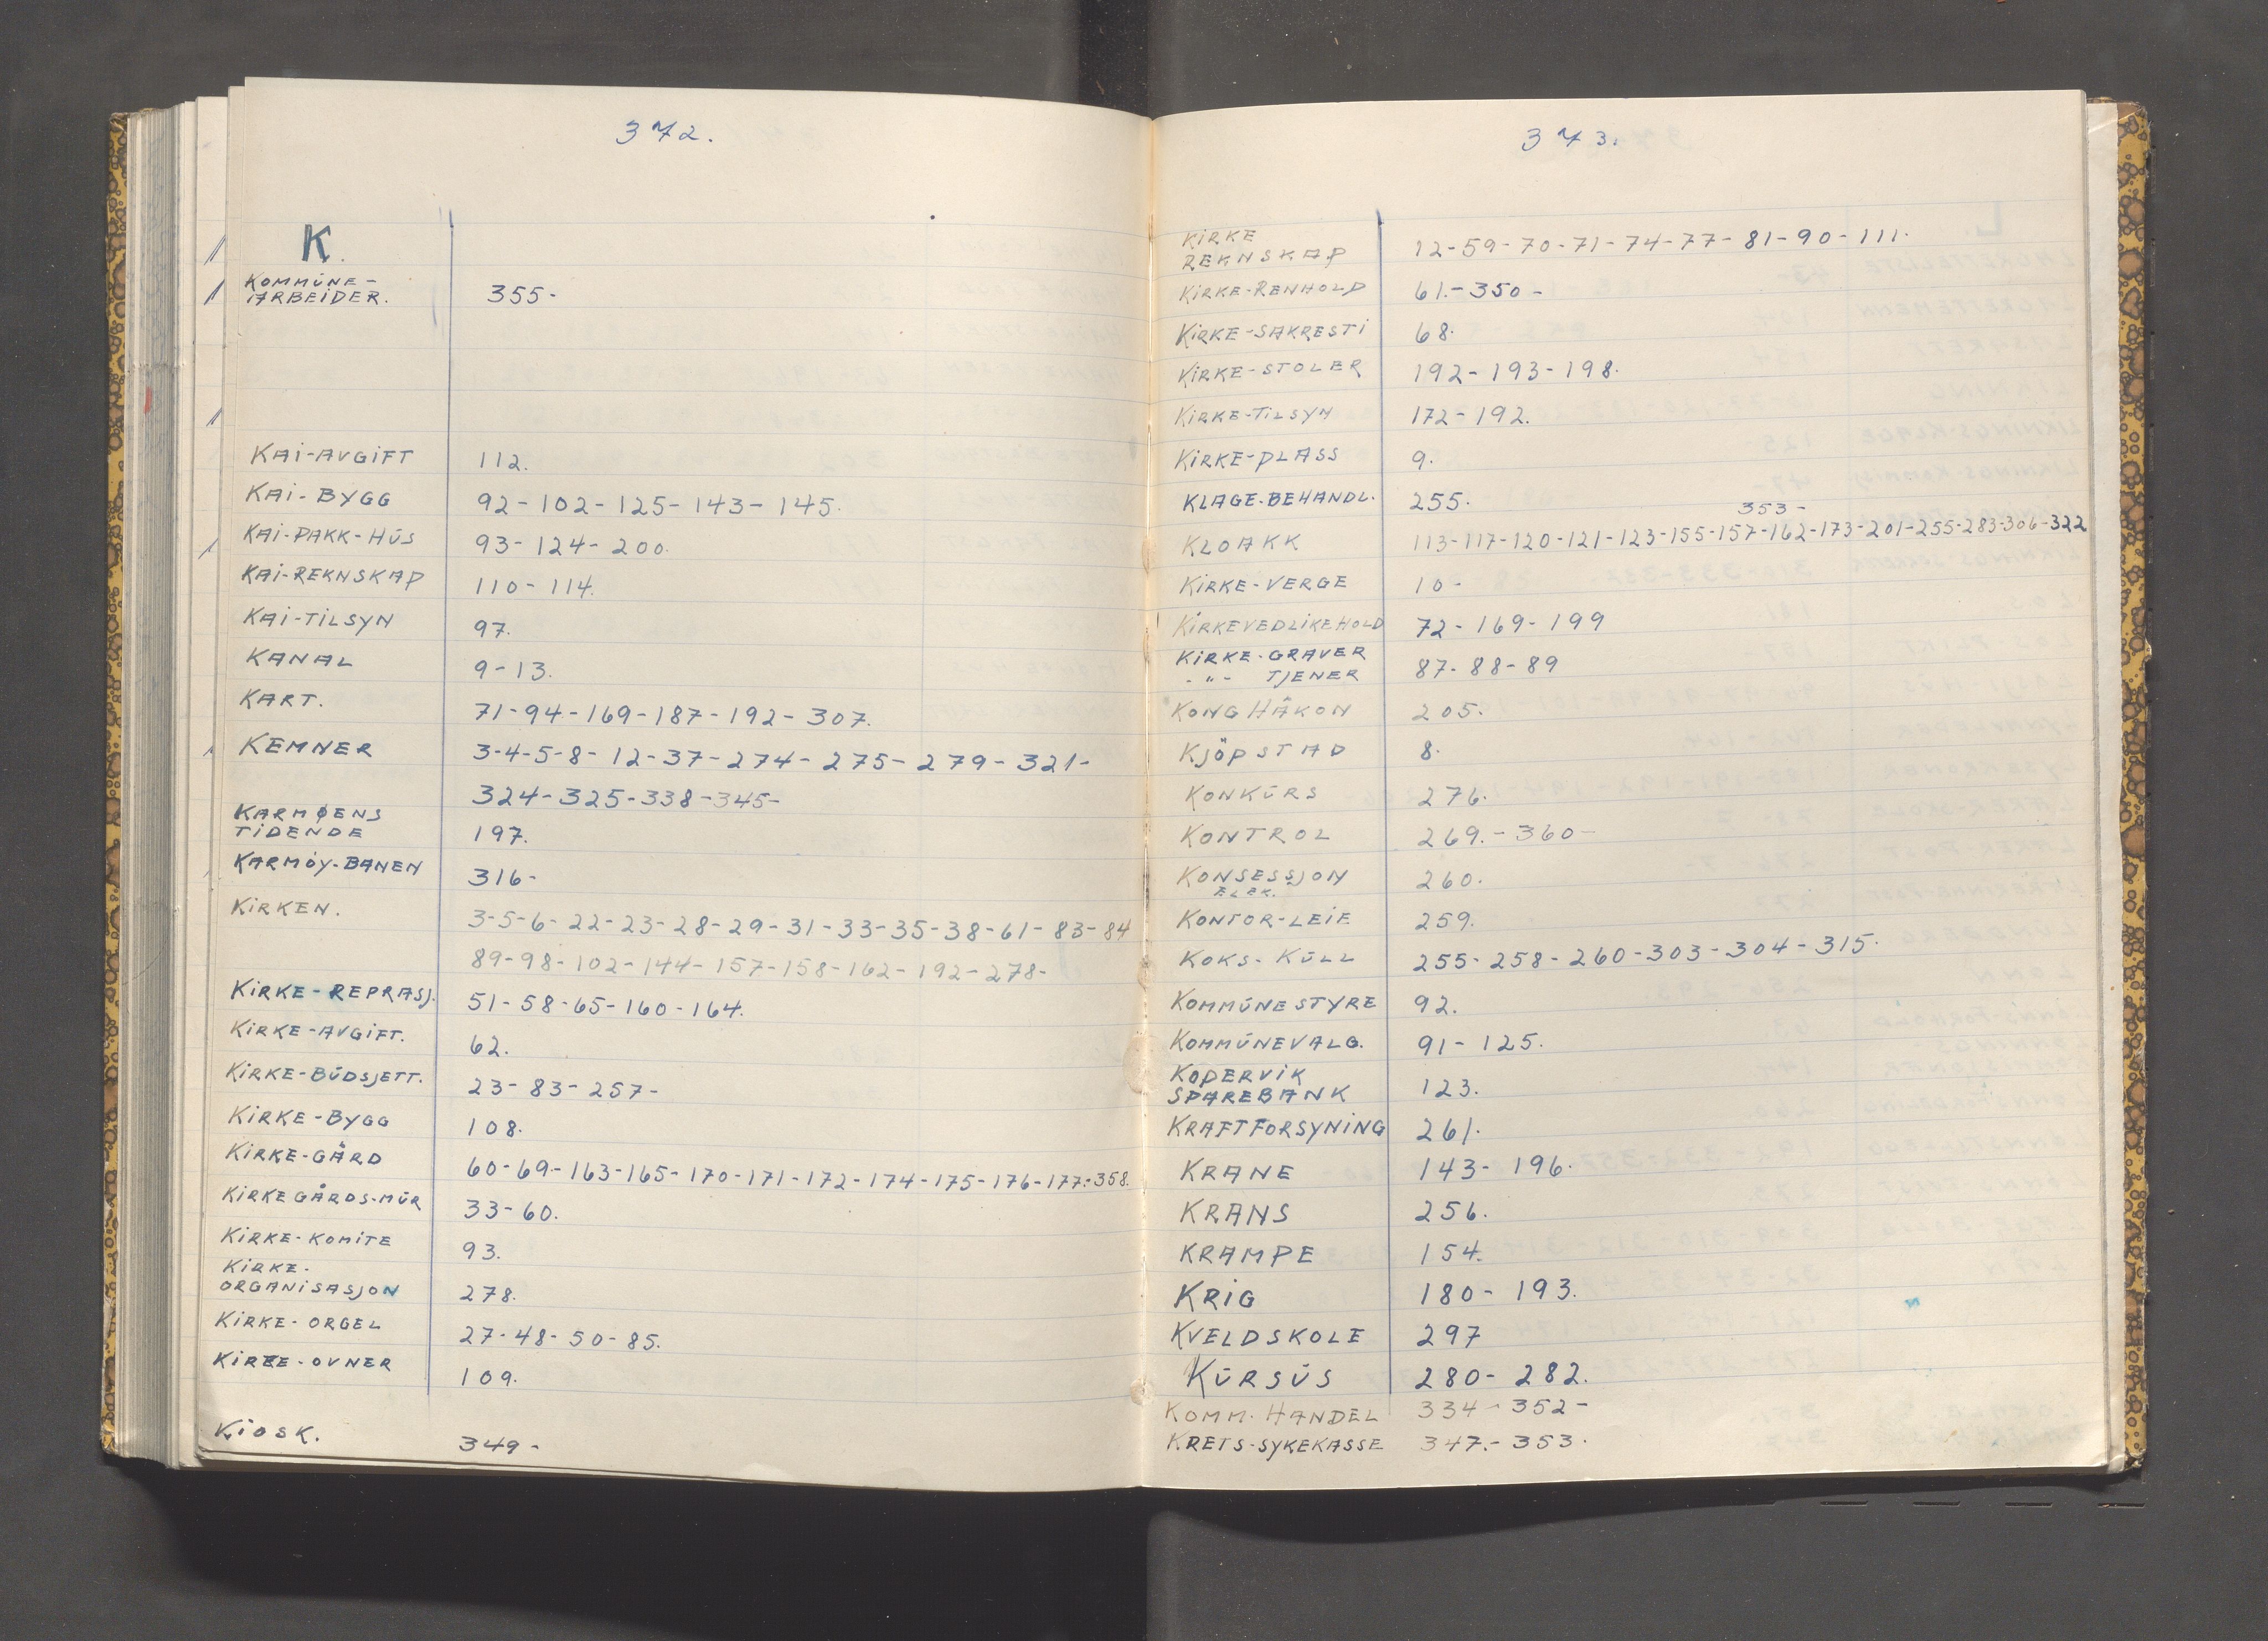 372.
K.
KOMMUNE-
ARBEIDER. 355-
KAI-AVGIFT 112.
KAI-BYGG 92-102-125-143-145.
KAI-PAKK-HUS 93-124-200.
KAI-REKNSKAP 110-114.
KAI-TILSYN 97.
KANAL 9-13.
KART. 71-94-169-187-192-307.
KEMNER 3-4-5-8-12-37-274-275-279-321-
324-325-338-345-
KARMØENS
TIDENDE 197.
KARMÖY-BANEN 316-
KIRKEN. 3-5-6-22-23-28-29-31-33-35-38-61-83-84
89-98-102-144-157-158-162-192-278-
KIRKE-REPRASJ. 51-58-65-160-164.
KIRKE-AVGIFT. 62.
KIRKE-BUDSJETT. 23-83-257-
KIRKE-BYGG 108.
KIRKE-GÅRD 60-69-163-165-170-171-172-174-175-176-177-358.
KIRKEGÅRDS-MUR 33-60.
KIRKE-KOMITE 93.
KIRKE-
ORGANISASJON 278.
KIRKE-ORGEL 27-48-50-85.
KIRKE-OVNER 109.
KIOSK. 349-
373.
KIRKE
REKNSKAP 12-59-70-71-74-77-81-90-111.
KIRKE-RENHOLD 61.-350-
KIRKE-SAKRESTI 68.
KIRKE-STOLER 192-193-198.
KIRKE-TILSYN 172-192.
KIRKE-PLASS 9.
KLAGE-BEHANDL. 255.
353-
KLOAKK 113-117-120-121-123-155-157-162-173-201-255-283-306-322
KIRKE-VERGE 10-
KIRKEVEDLIKEHOLD 72-169-199
KIRKE-GRAVER
-"- TJENER 87-88-89
KONG HÅKON 205.
KJÖPSTAD 8.
KONKURS 276.
KONTROL 269.-360-
KONSESSJON
ELEK. 260.
KONTOR-LEIE 259.
KOKS-KULL 255-258-260-303-304-315.
KOMMUNESTYRE 92.
KOMMUNEVALG. 91-125.
KOPERVIK
SPAREBANK 123.
KRAFTFORSYNING 261.
KRANE 143-196.
KRANS 256.
KRAMPE 154.
KRIG 180-193.
KVELDSKOLE 297
KURSUS 280-282.
KOMM. HANDEL 334-352-
KRETS-SYKEKASSE 347.-353.